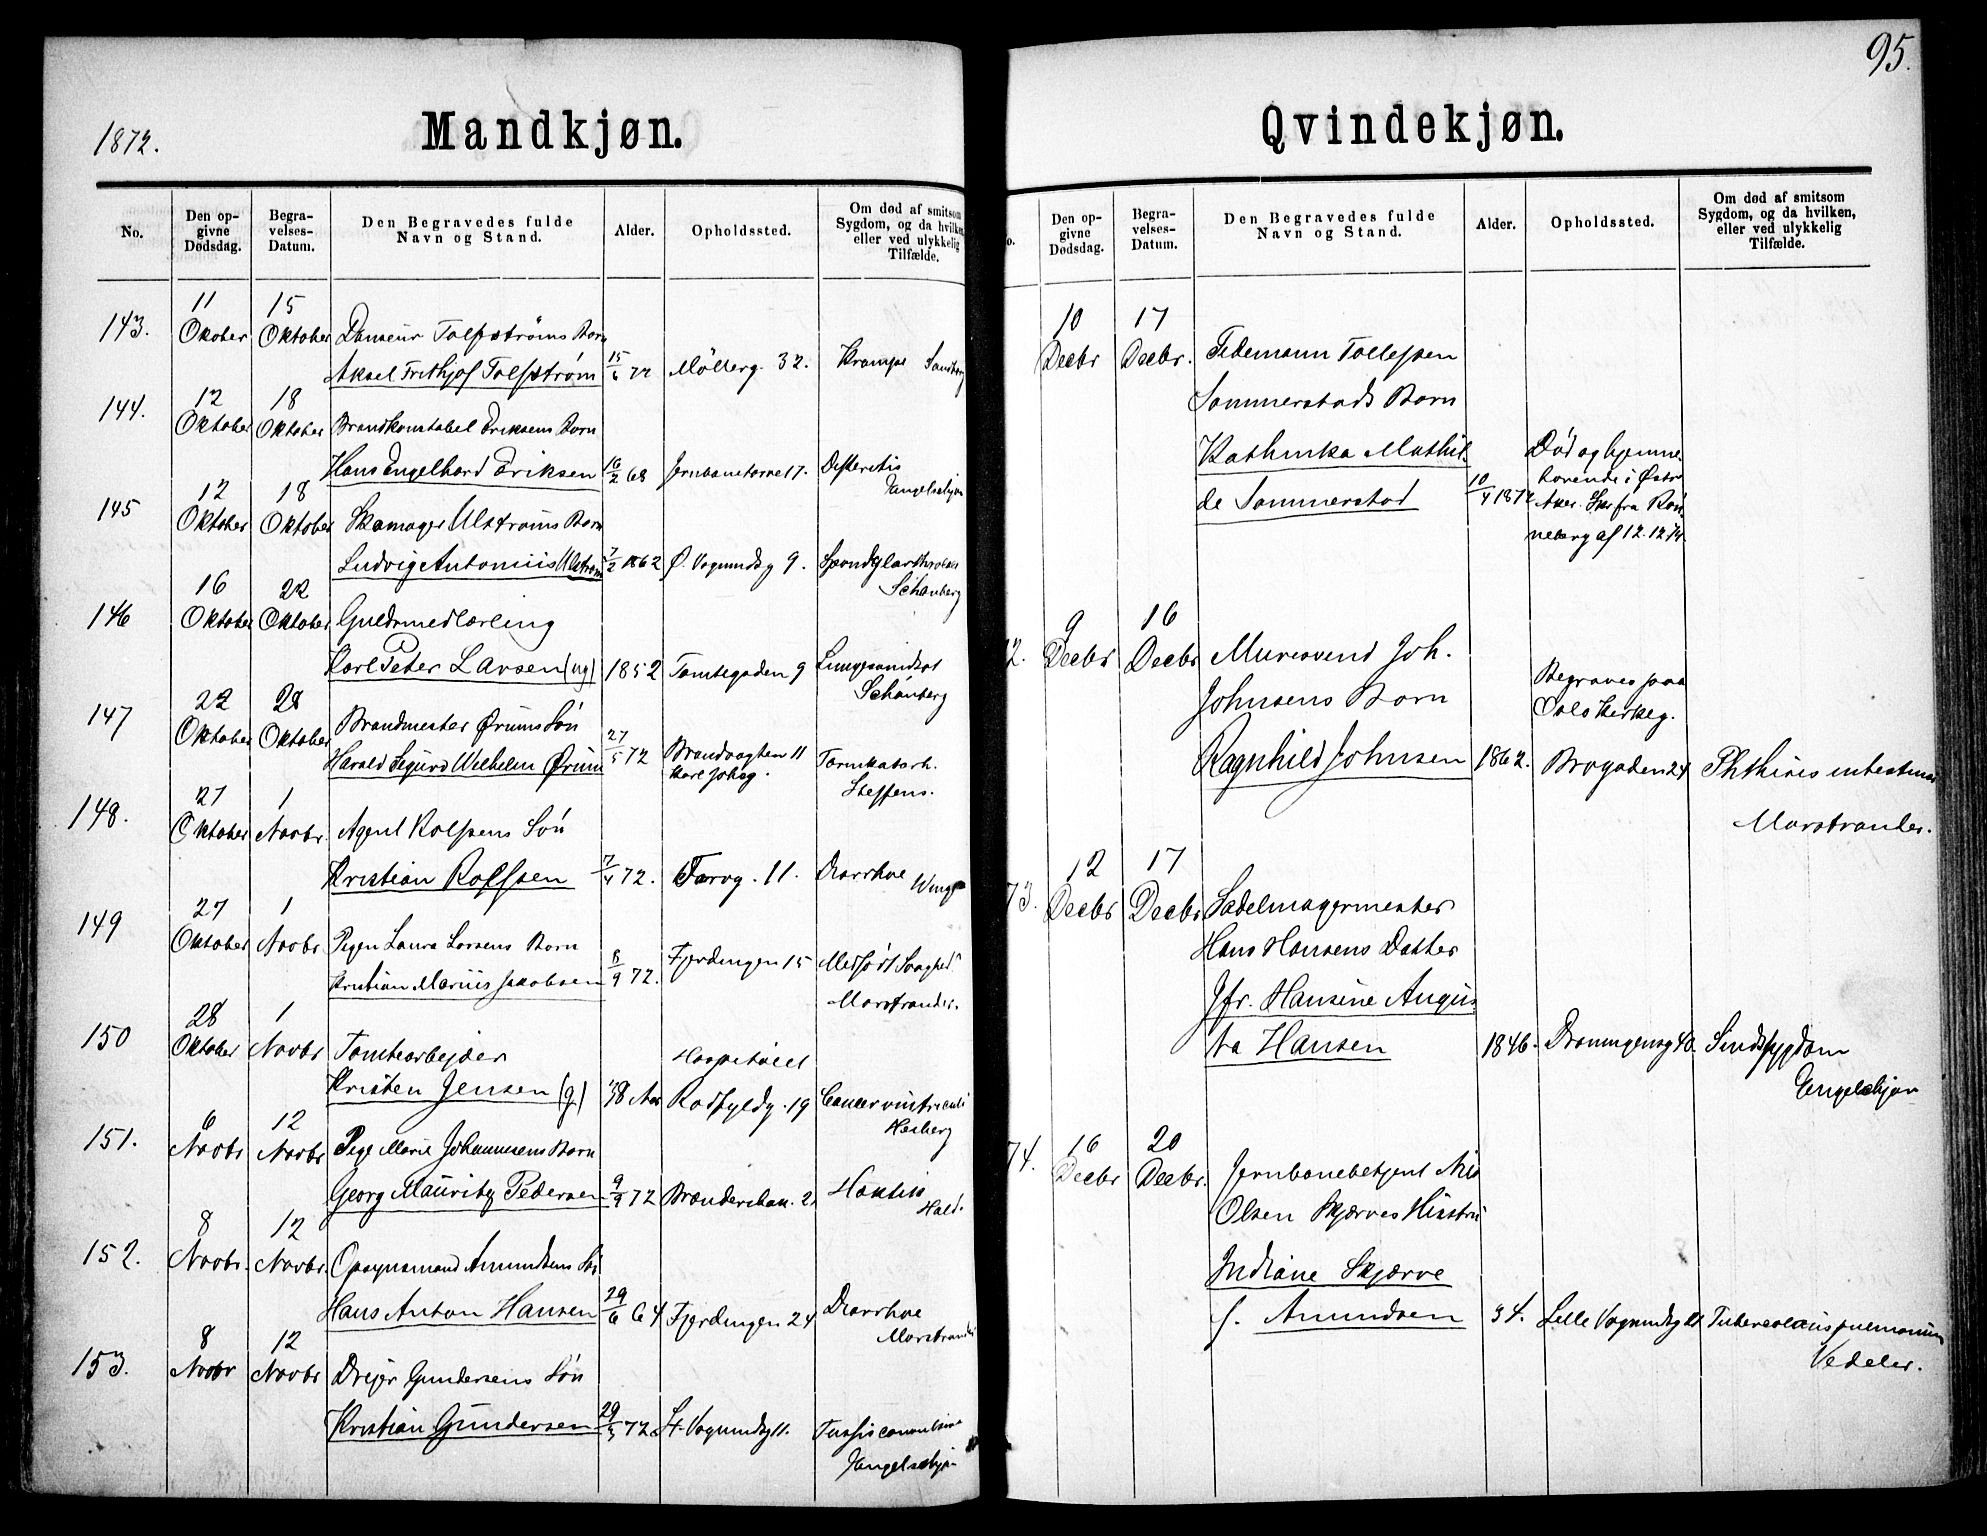 95.
1872.
Mandkjøn.
No.
Den opgivne Dødsdag.
Begravelses-Datum.
Den Begravedes fulde Navn og Stand.
Alder.
Opholdssted.
Om død af smitsom Sygdom, og da hvilken, eller ved ulykkelig Tilfælde.
143.
11 Oktober
15 Oktober
Aksel Frithjof
15/6 72
Møllerg. 32.
Krampe
144.
12 Oktober
18 Oktober
Brandkonstabel Eriksens Barn
Hans Engelhard Eriksen
16/2 68
Jernbanetorvet 7.
Difteritis
Engelschjøn
145
12 Oktober
18 Oktober
Skomager Ulstrøms Barn
Ludvig Antonius Ulstrøm
7/2 1862
Ø. Vognmdsg 9.
Schønberg
146
16 Oktober
22 Oktober
Guldsmedlærling
Karl Peter Larsen (ug)
1852
Tomtegaden 9
Schønberg
147
22 Oktober
28 Oktober
Brandmester Ørums Søn
Harald Sigurd Wilhelm Ørum
27/5 72
Brandvagten 11
Karl Johsg.
Tarmkatarrh.
Steffens.
148.
27 Oktober
1 Novbr.
Agent Rolfsens Søn
Kristian Rolfsen
7/4 72.
Torvg. 11.
Diarrhoe
149
27 Oktober
1 Novbr.
Pigen Laura Larsens Barn
Kristian Marius Jakobsen
8/9 72.
Fjerdingen 15
Medfødt Svaghed.
Marstrander.
150
28 Oktober
1 Novbr
Tomtearbejder
Kristen Jensen (g)
38 Aar
Hospitalet
Rodfyldg. 19
Cancer ventriculi
Heiberg
151.
6 Novbr
12 Novbr
Pige Marie Johannesens Barn
Georg Mauritz Pedersen
9/9 72
Hald.
152.
8 Novbr.
12 Novbr.
Opsynsmand Amundsens Søn
Hans Anton Hansen
29/6 64
Fjerdingen 24
Diarrhoe
Marstrander
153.
8 Novbr
12 Novbr
Drejer Gundersens Søn
Kristian Gundersen
29/3 72
St. Vognmdsg 11.
Tussis convulsiva
Engelschjøn
Qvindekjøn.
o.
Den opgivne Dødsdag.
Begravelses-Datum.
Den Begravedes fulde Navn og Stand.
Alder.
Opholdssted.
Om død af smitsom Sygdom, og da hvilken, eller ved ulykkelig Tilfælde.
10 Decbr
17 Decbr.
Tidemann Tollefsen
Sommerstads Barn
Kathinka Mathil-
de Sommerstad
10/4 1872
Død og hjemme-
hørende i Østre
Aker. Skr fra Røn-
neberg af 12.12.74
2.
9 Decbr
16 Decbr
Mursvend Joh.
Johnsens Barn
Ragnhild Johnsen
1862.
Begraves paa
Oslo Kirkeg.
Brogaden 24
Phthisis intestinal
Marstrander.
73.
12 Decbr
17 Decbr
Sadelmagermester
Hans Hansens Datter
Jfr. Hansine Augus-
ta Hansen
1846.
Dronningensg 40.
Sindssygdom
Engelschjøn
74.
16 Decbr
20 Decbr.
Jernbanebetjent Nils
Olsen Skjærves Hustru
Indiane Skjærve
f. Amundsen
34.
Lille Vognmdsg 11
Tuberculosis pulmonum
Vedeler.